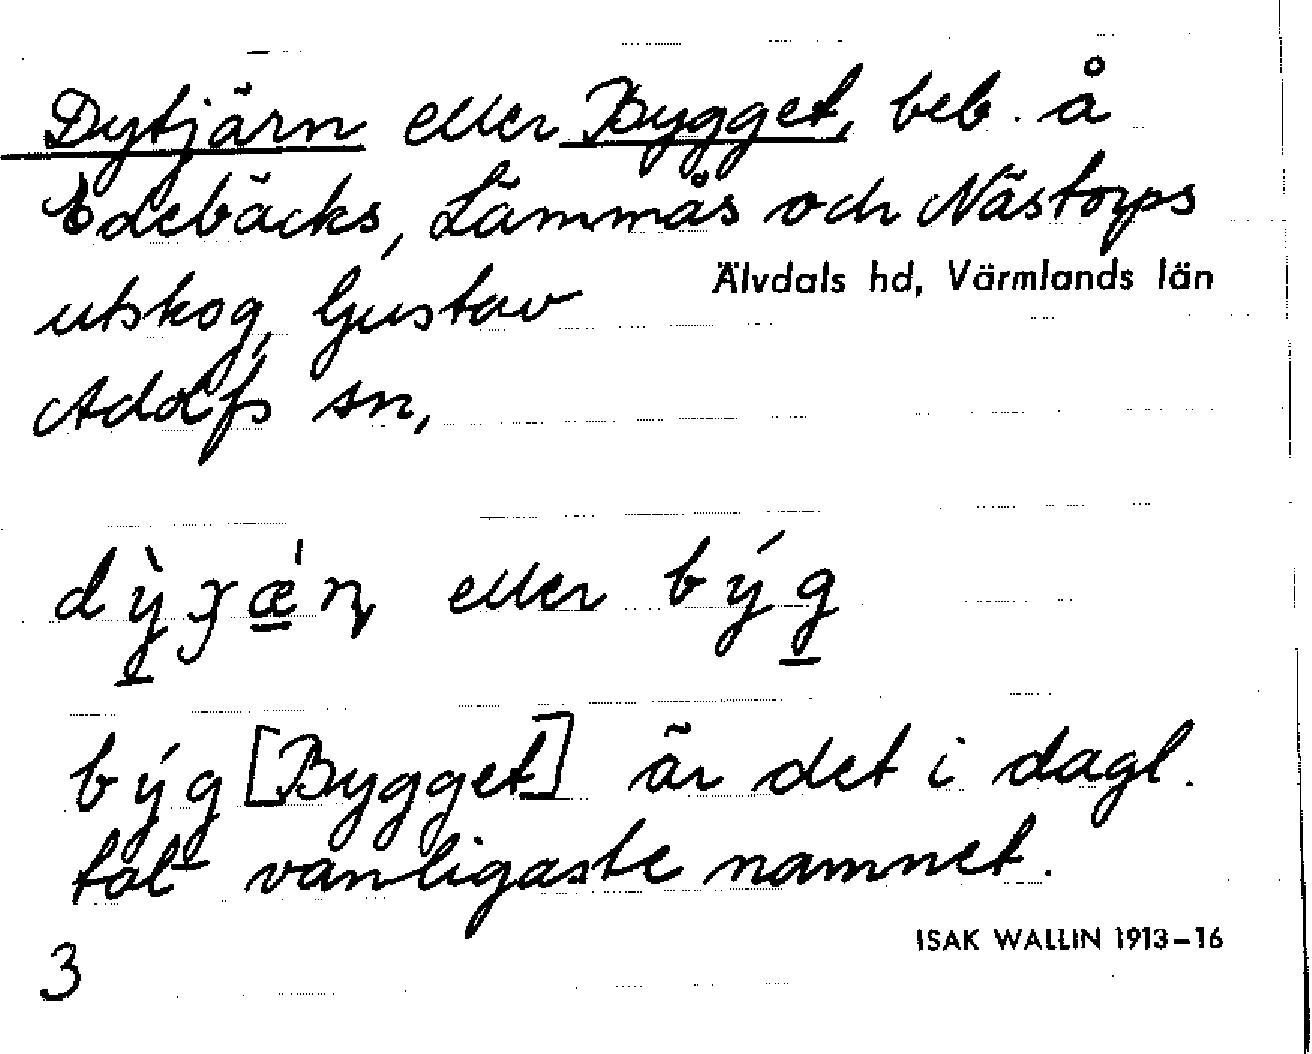 Dytjärn eller Bygget, beb. å
Edebäcks, Lämmås och Nästorps
utskog, Gustav
Älvdals hd, Värmlands län
Adolfs sn,
eller býg
býg [Bygget] är det i dagl.
tal vanligaste namnet.
ISAK WALLIN 1913–16
3